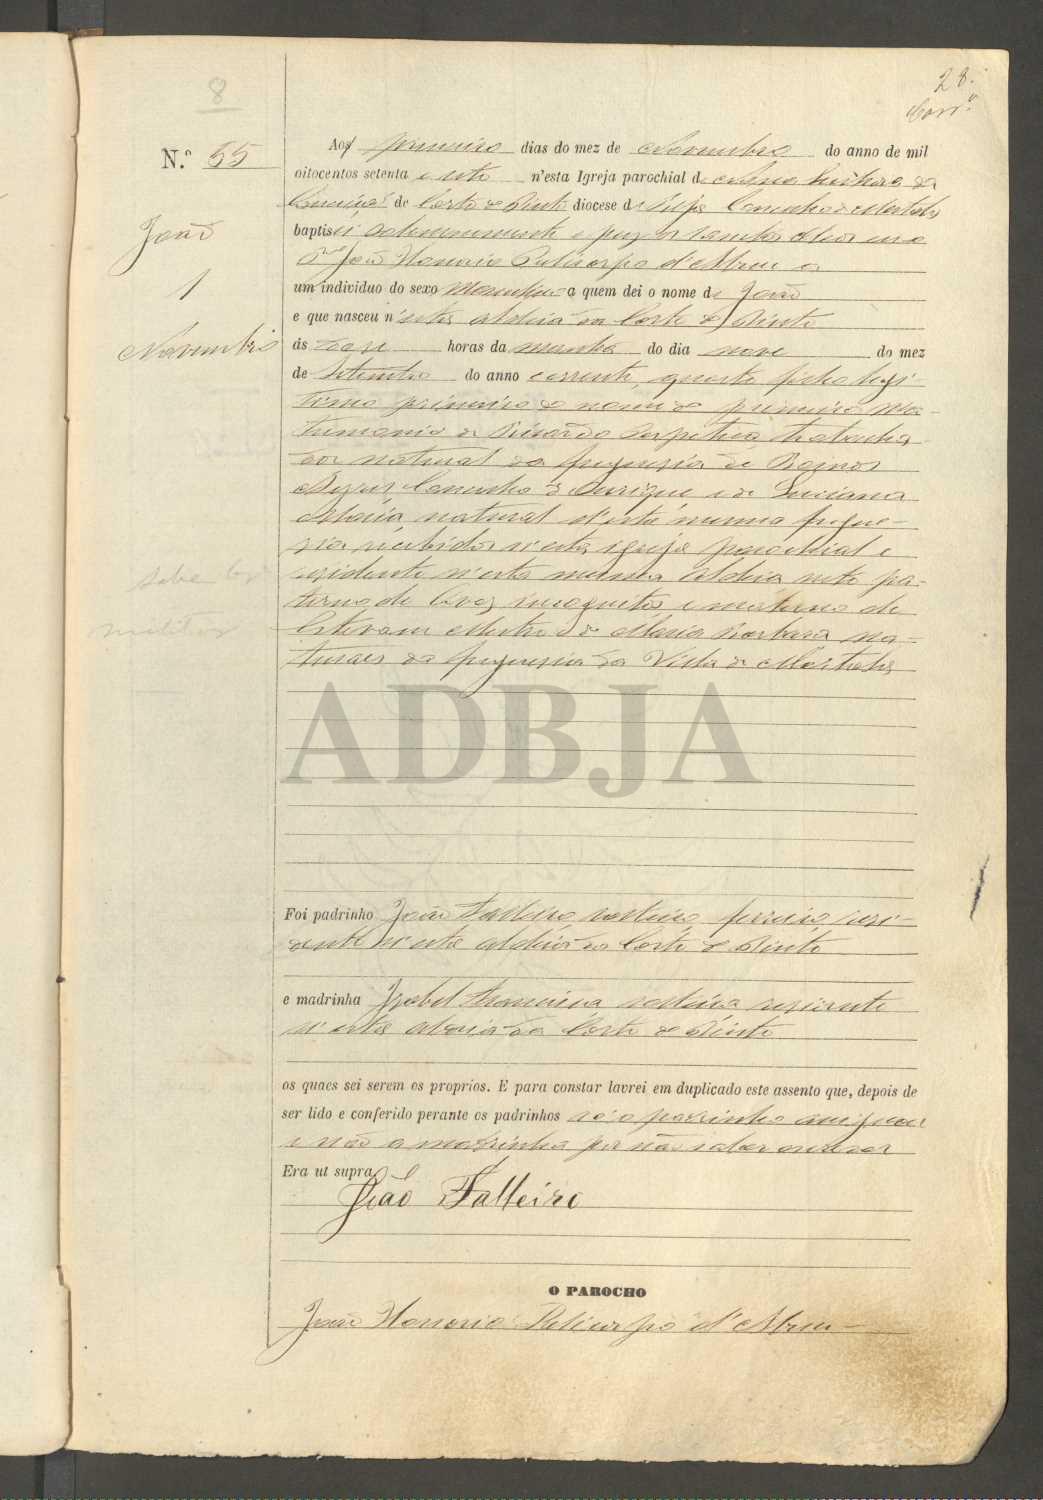 28.
8
N.º 55
João
1
Novembro
Aos primeiro dias do mez de Novembro do anno de mil
oitocentos setenta e oito n'esta Igreja parochial de Nossa Senhora da
Conceição de Corte do Pinto diocese de Beja Concelho de Mertola
baptisei solemnemente e puz os santos oleos eu o
Pr.e João Honorio Policarpo d'Abreu a
um individuo do sexo Masculino a quem dei o nome de João
e que nasceu n'esta aldeia da Corte do Pinto
ás horas da manhã do dia nove do mez
de Setembro do anno corrente, quarto filho legi-
timo primeiro do nome do primeiro Ma-
trimonio de Ricardo Perpetua trabalha-
dor natural da freguesia de
Concelho d'Ourique e de Luciana
Maria natural d'esta mesma fregue-
sia recebidos n'esta igreja parochial e
residente n'esta mesma Aldeia neto pa-
terno de Avos incognitos e materno de
Estevam Mestre e de Maria Barbara na-
turaes da freguesia da Villa de Mertola
sabe ler
militar
ADBJA
Foi padrinho João Falleiro solteiro resi-
dente n'esta aldeia da Corte do Pinto
e madrinha Izabel Francisca solteira residente
n'esta aldeia da Corte do Pinto
os quaes sei serem os proprios. E para constar lavrei em duplicado este assento que, depois de
ser lido e conferido perante os padrinhos só o padrinho assignou
e não a madrinha por não saber escrever
Era ut supra
João Falleiro
O PAROCHO
João Honorio Policarpo d'Abreu